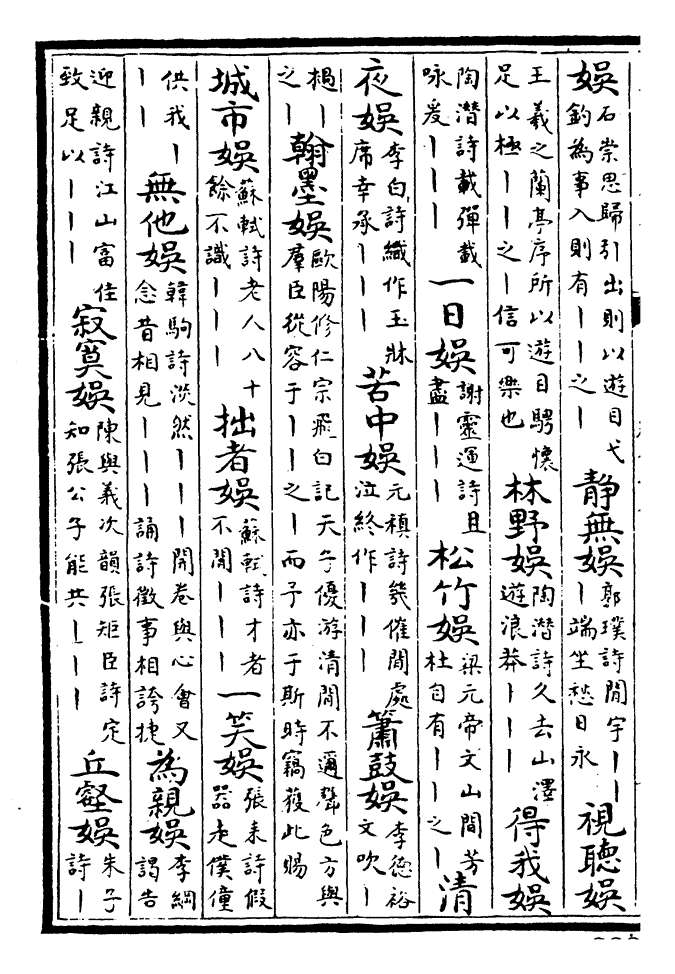 娛石崇思歸引出則以遊目弋釣為事入則有丨丨之丨 靜無娛郭璞詩閒宇丨丨丨端坐愁日永 視聽娛
王羲之蘭亭序所以遊目騁懷足以極丨丨之丨信可樂也 林野娛陶潛詩久去山澤遊浪莽丨丨丨 得我娛
陶潛詩載彈載咏爰丨丨丨 一日娛謝靈運詩且盡丨丨丨 松竹娛梁元帝文山間芳杜自有丨丨之丨 清
夜娛李白詩織作玉牀席幸承丨丨丨 苦中娛元稹詩幾催閒處泣終作丨丨丨 簫鼓娛李德裕文吹丨
丨之丨 翰墨娛歐陽修仁宗飛白記天子優游清閒不邇聲色方與羣臣從容于丨丨之丨而予亦于斯時竊獲此賜
城市娛蘇軾詩老人八十餘不識丨丨丨 拙者娛蘇軾詩才者不閒丨丨丨 一笑娛張耒詩假器走僕僮
供我丨丨丨 無他娛韓駒詩淡然丨丨丨開卷與心會又念昔相見丨丨丨誦詩徵事相誇捷 為親娛李綱謁告
迎親詩江山富佳致足以丨丨丨 寂寞娛陳與義次韻張矩臣詩定知張公子能共丨丨丨 丘壑娛朱子詩丨